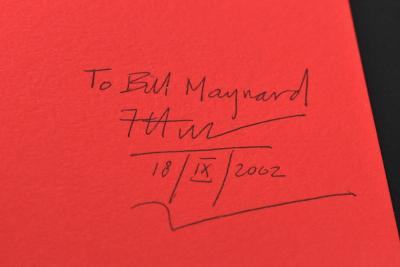 To Bill Maynard
18/IX/2002